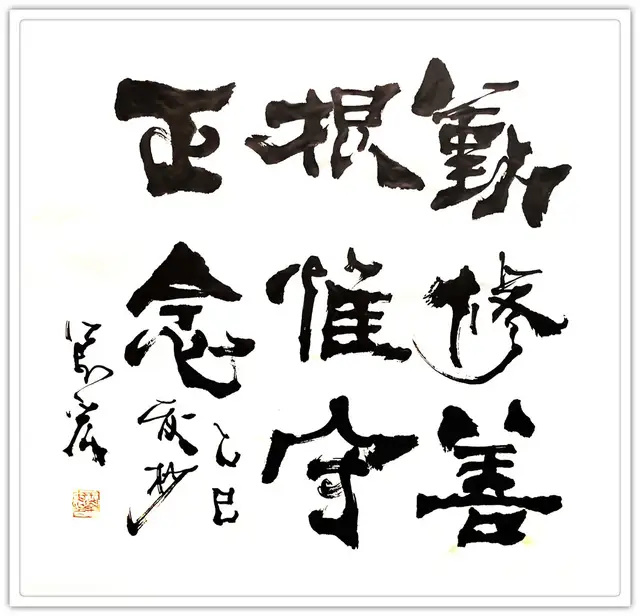 勤修善
根惟守
正念
乙巳
夏杪